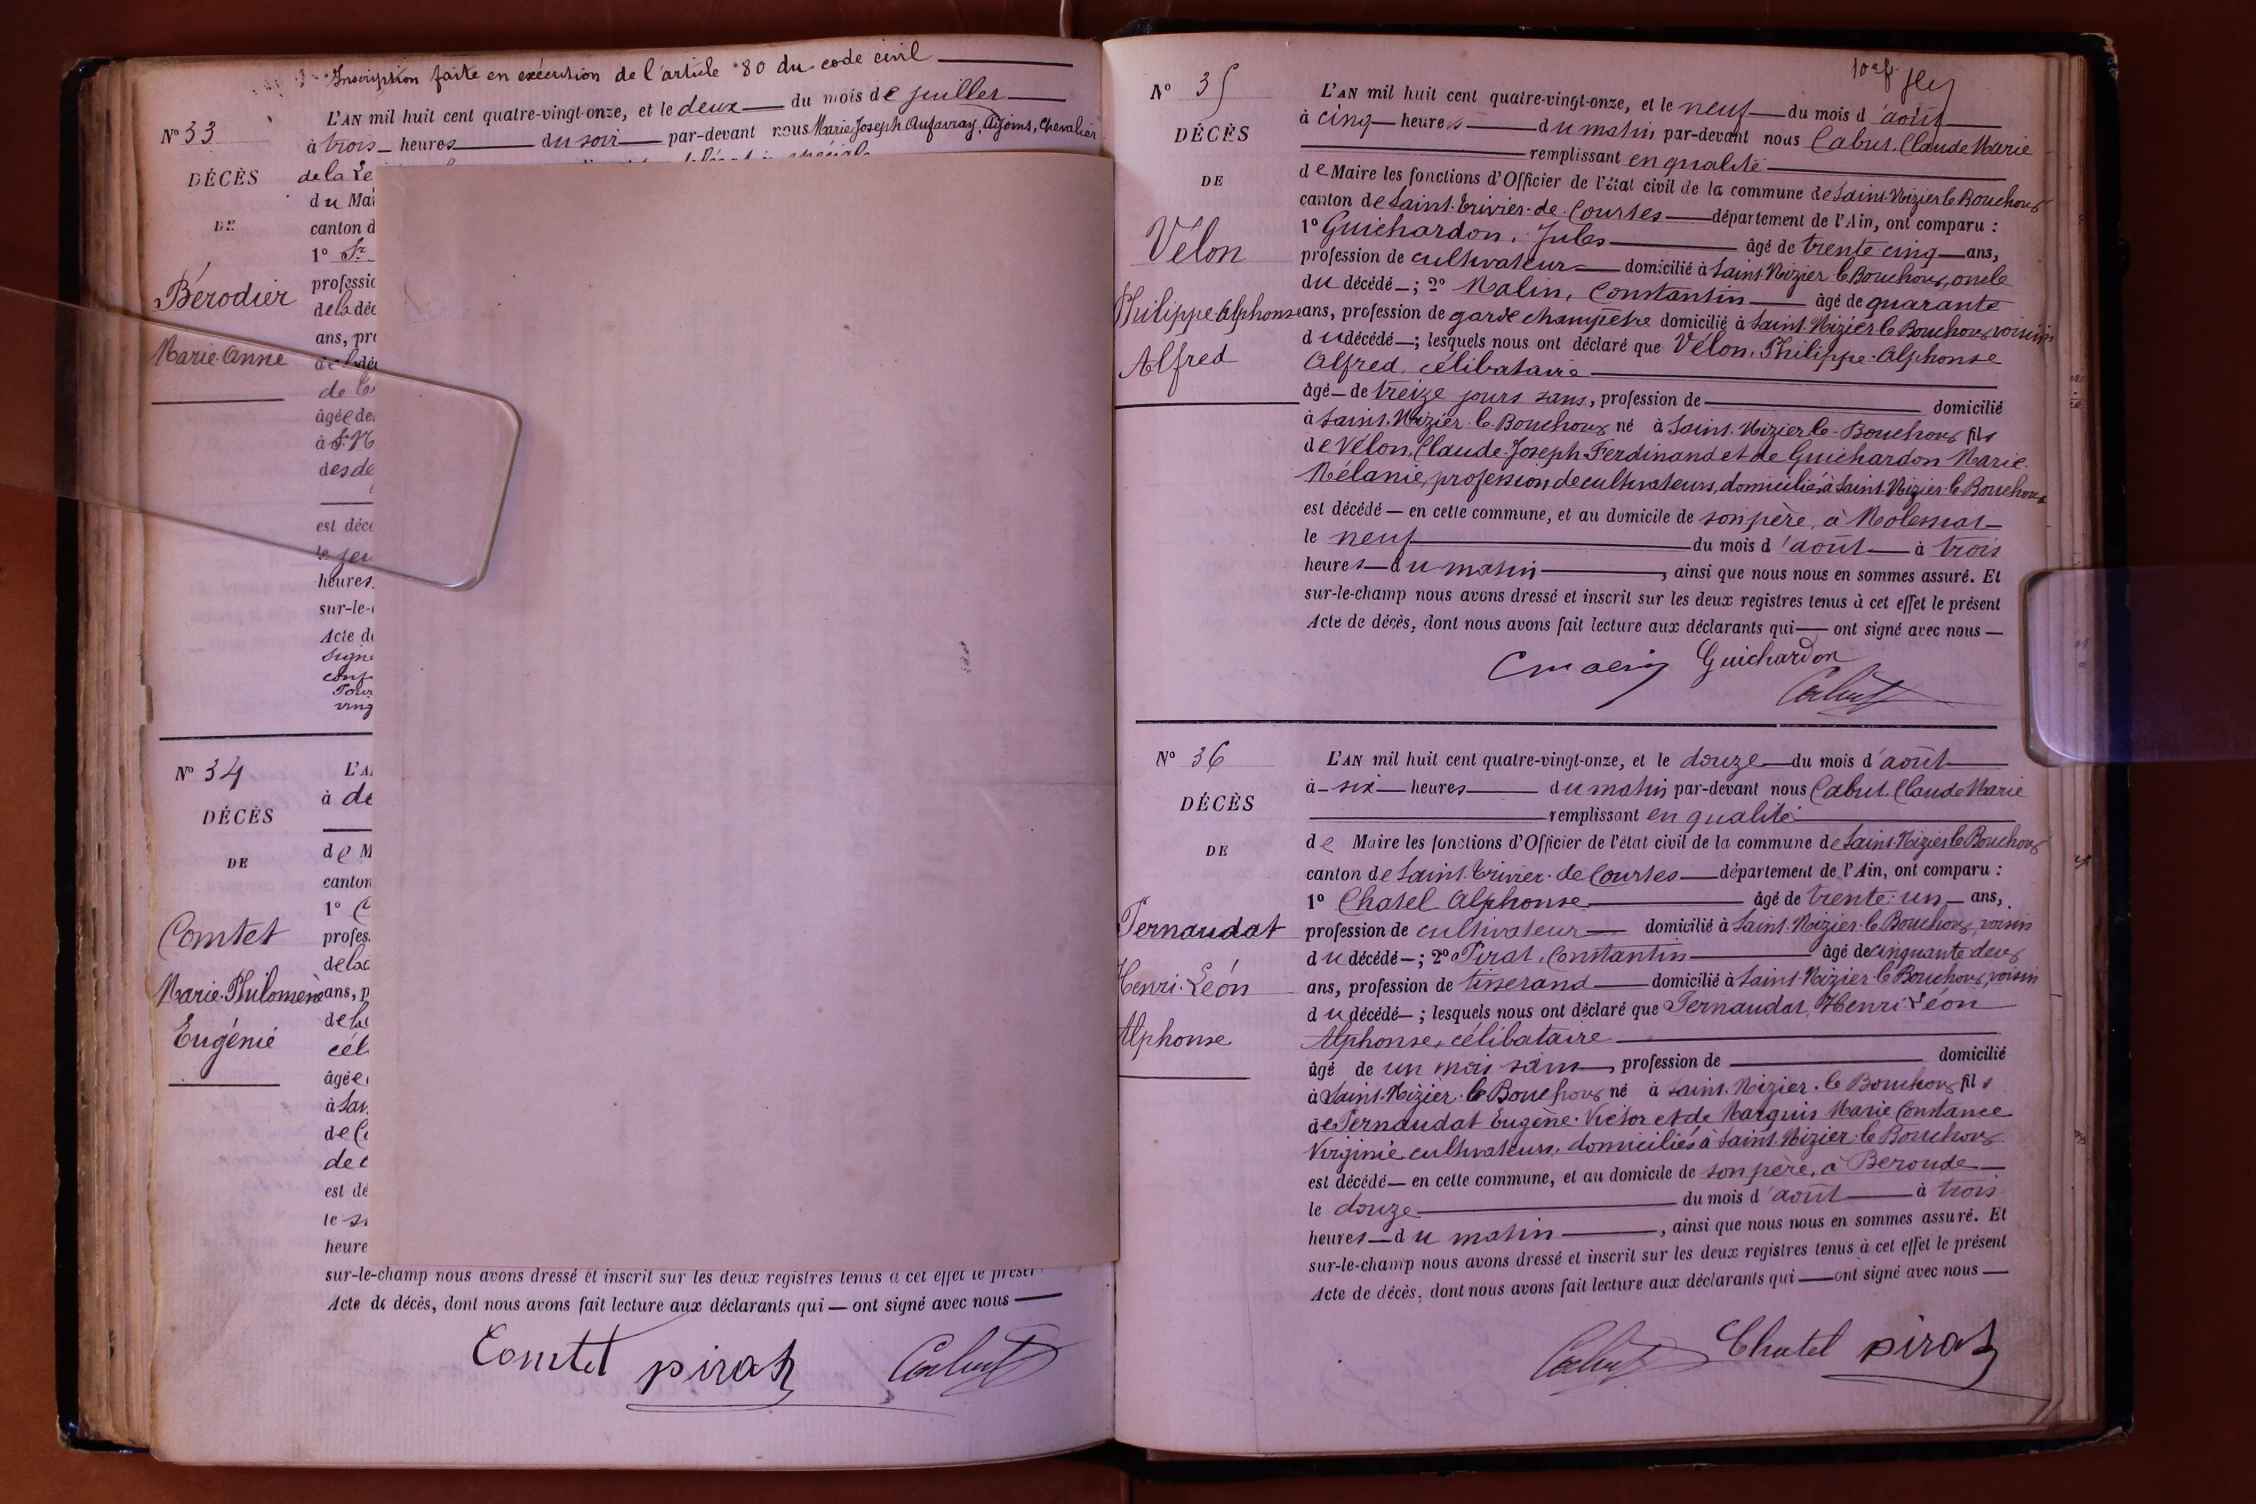 Inscription faite en exécution de l'article 80 du code civil
L'AN mil huit cent quatre-vingt-onze, et le deux du mois de juillet
N° 33
à trois heures du soir par-devant nous Marie Joseph Aufavray, Adjoint, Chevalier
DÉCÈS
de la Le
du Mai
DE
canton d
1° Sr
Bérodier
professio
de la déc
ans, pro
Marie-Anne
de la déc
âgée de
à St N
des de
est décé
le jeu
heures
sur-le-c
Acte de
signé
conf
Pour
ving
N° 34
L'A
à de
DÉCÈS
de M
DE
canton
1° C
Comtet
profes
de la d
Marie-Philomène
ans, p
de la
Eugénie
cél
âgée
à Sai
de Co
de
est dé
le
heure
sur-le-champ nous avons dressé et inscrit sur les deux registres tenus à cet effet le présent
Acte de décès, dont nous avons fait lecture aux déclarants qui — ont signé avec nous —
Comtet pirat Cabut
N° 35
L'AN mil huit cent quatre-vingt-onze, et le neuf du mois d'août
à cinq heures du matin par-devant nous Cabut, Claude Marie
DÉCÈS
remplissant en qualité
DE
de Maire les fonctions d'Officier de l'état civil de la commune de Saint-Nizier le Bouchoux
canton de Saint-Trivier-de-Courtes département de l'Ain, ont comparu :
1° Guichardon, Jules âgé de trente cinq ans,
Vélon
profession de cultivateur domicilié à Saint Nizier le Bouchoux, oncle
du décédé ; 2° Malin, Constantin âgé de quarante
Philippe Alphonse
ans, profession de garde champêtre domicilié à Saint-Nizier le Bouchoux, voisin
du décédé ; lesquels nous ont déclaré que Vélon, Philippe-Alphonse
Alfred
Alfred, célibataire
âgé de treize jours sans, profession de domicilié
à Saint-Nizier-le-Bouchoux né à Saint-Nizier le-Bouchoux fils
de Vélon, Claude-Joseph-Ferdinand et de Guichardon Marie-
Mélanie, profession de cultivateurs, domiciliés à Saint Nizier-le Bouchoux
est décédé — en cette commune, et au domicile de son père, à
le neuf du mois d'août à trois
heures du matin, ainsi que nous nous en sommes assuré. Et
sur-le-champ nous avons dressé et inscrit sur les deux registres tenus à cet effet le présent
Acte de décès, dont nous avons fait lecture aux déclarants qui — ont signé avec nous —
Cmalin Guichardon
Cabut
N° 36
L'AN mil huit cent quatre-vingt-onze, et le douze du mois d'août
à six heures du matin par-devant nous Cabut, Claude Marie
DÉCÈS
remplissant en qualité
DE
de Maire les fonctions d'Officier de l'état civil de la commune de Saint-Nizier le Bouchoux
canton de Saint-Trivier-de Courtes département de l'Ain, ont comparu :
1° Chatel Alphonse âgé de trente-un ans,
Pernaudat
profession de cultivateur domicilié à Saint-Nizier-le Bouchoux, voisin
du décédé ; 2° Pirat, Constantin âgé de cinquante deux
Henri-Léon
ans, profession de tisserand domicilié à Saint Nizier-le Bouchoux, voisin
du décédé ; lesquels nous ont déclaré que Pernaudat, Henri Léon
Alphonse
Alphonse, célibataire
âgé de un mois sans, profession de domicilié
à Saint-Nizier-le Bouchoux né à Saint-Nizier-le Bouchoux fils
de Pernaudat Eugène-Victor et de Marquis Marie Constance
Virginie cultivateurs, domiciliés à Saint Nizier-le Bouchoux
est décédé — en cette commune, et au domicile de son père, à Beroude
le douze du mois d'août à trois
heures du matin, ainsi que nous nous en sommes assuré. Et
sur-le-champ nous avons dressé et inscrit sur les deux registres tenus à cet effet le présent
Acte de décès, dont nous avons fait lecture aux déclarants qui — ont signé avec nous —
Cabut Chatel pirat